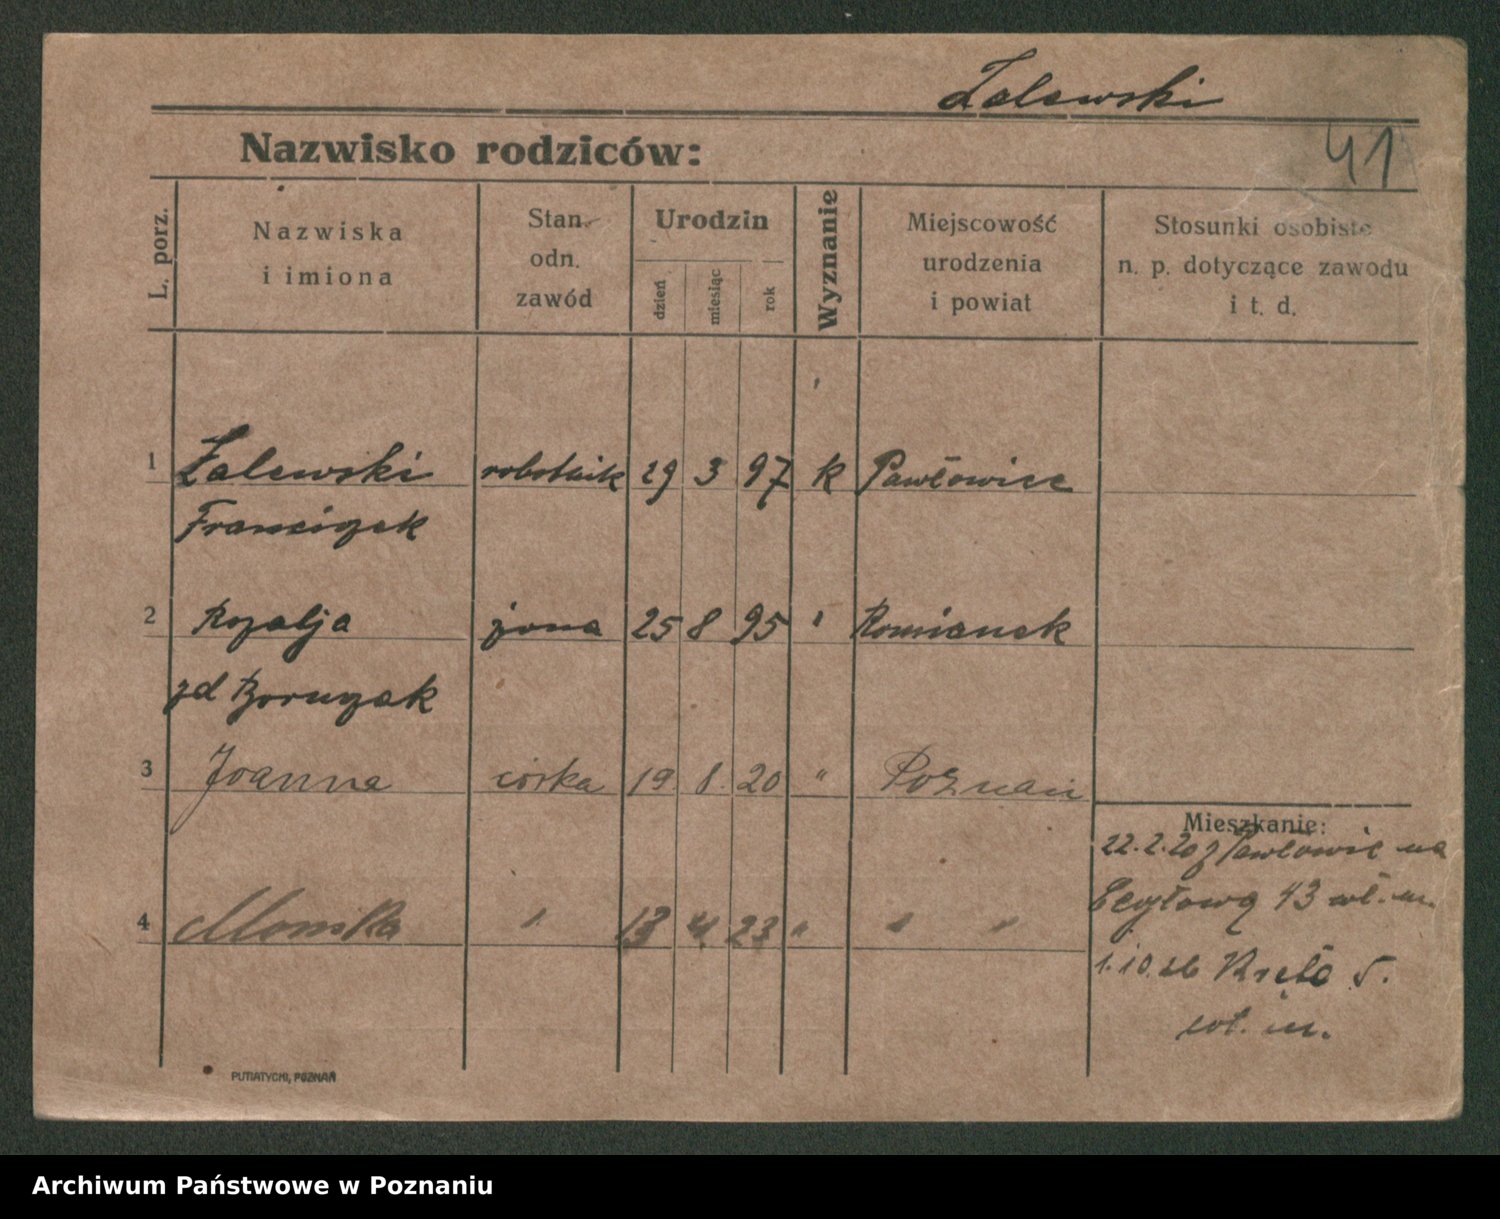 Zalewski
Nazwisko rodziców:
41
L. porz.
Nazwiska
i imiona
Stan.
odn.
zawód
Urodzin
dzień
miesiąc
rok
Wyznanie
Miejscowość
urodzenia
i powiat
Stosunki osobiste
n. p. dotyczące zawodu
i t. d.
1 Zalewski robotnik 29 3 97 k Pawłowice
Franciszek
2 Rozalja żona 25 8 95 " Romianek
zd Boruczak
3 Joanna córka 19. 8. 20 " Poznań
Mieszkanie:
22.2.20 z Pawłowic na
4 Monika " 13 4. 23 " " "
43 wł. m.
1.10.26 Kręta 5.
wł. m.
PUTIATYCKI, POZNAŃ
Archiwum Państwowe w Poznaniu